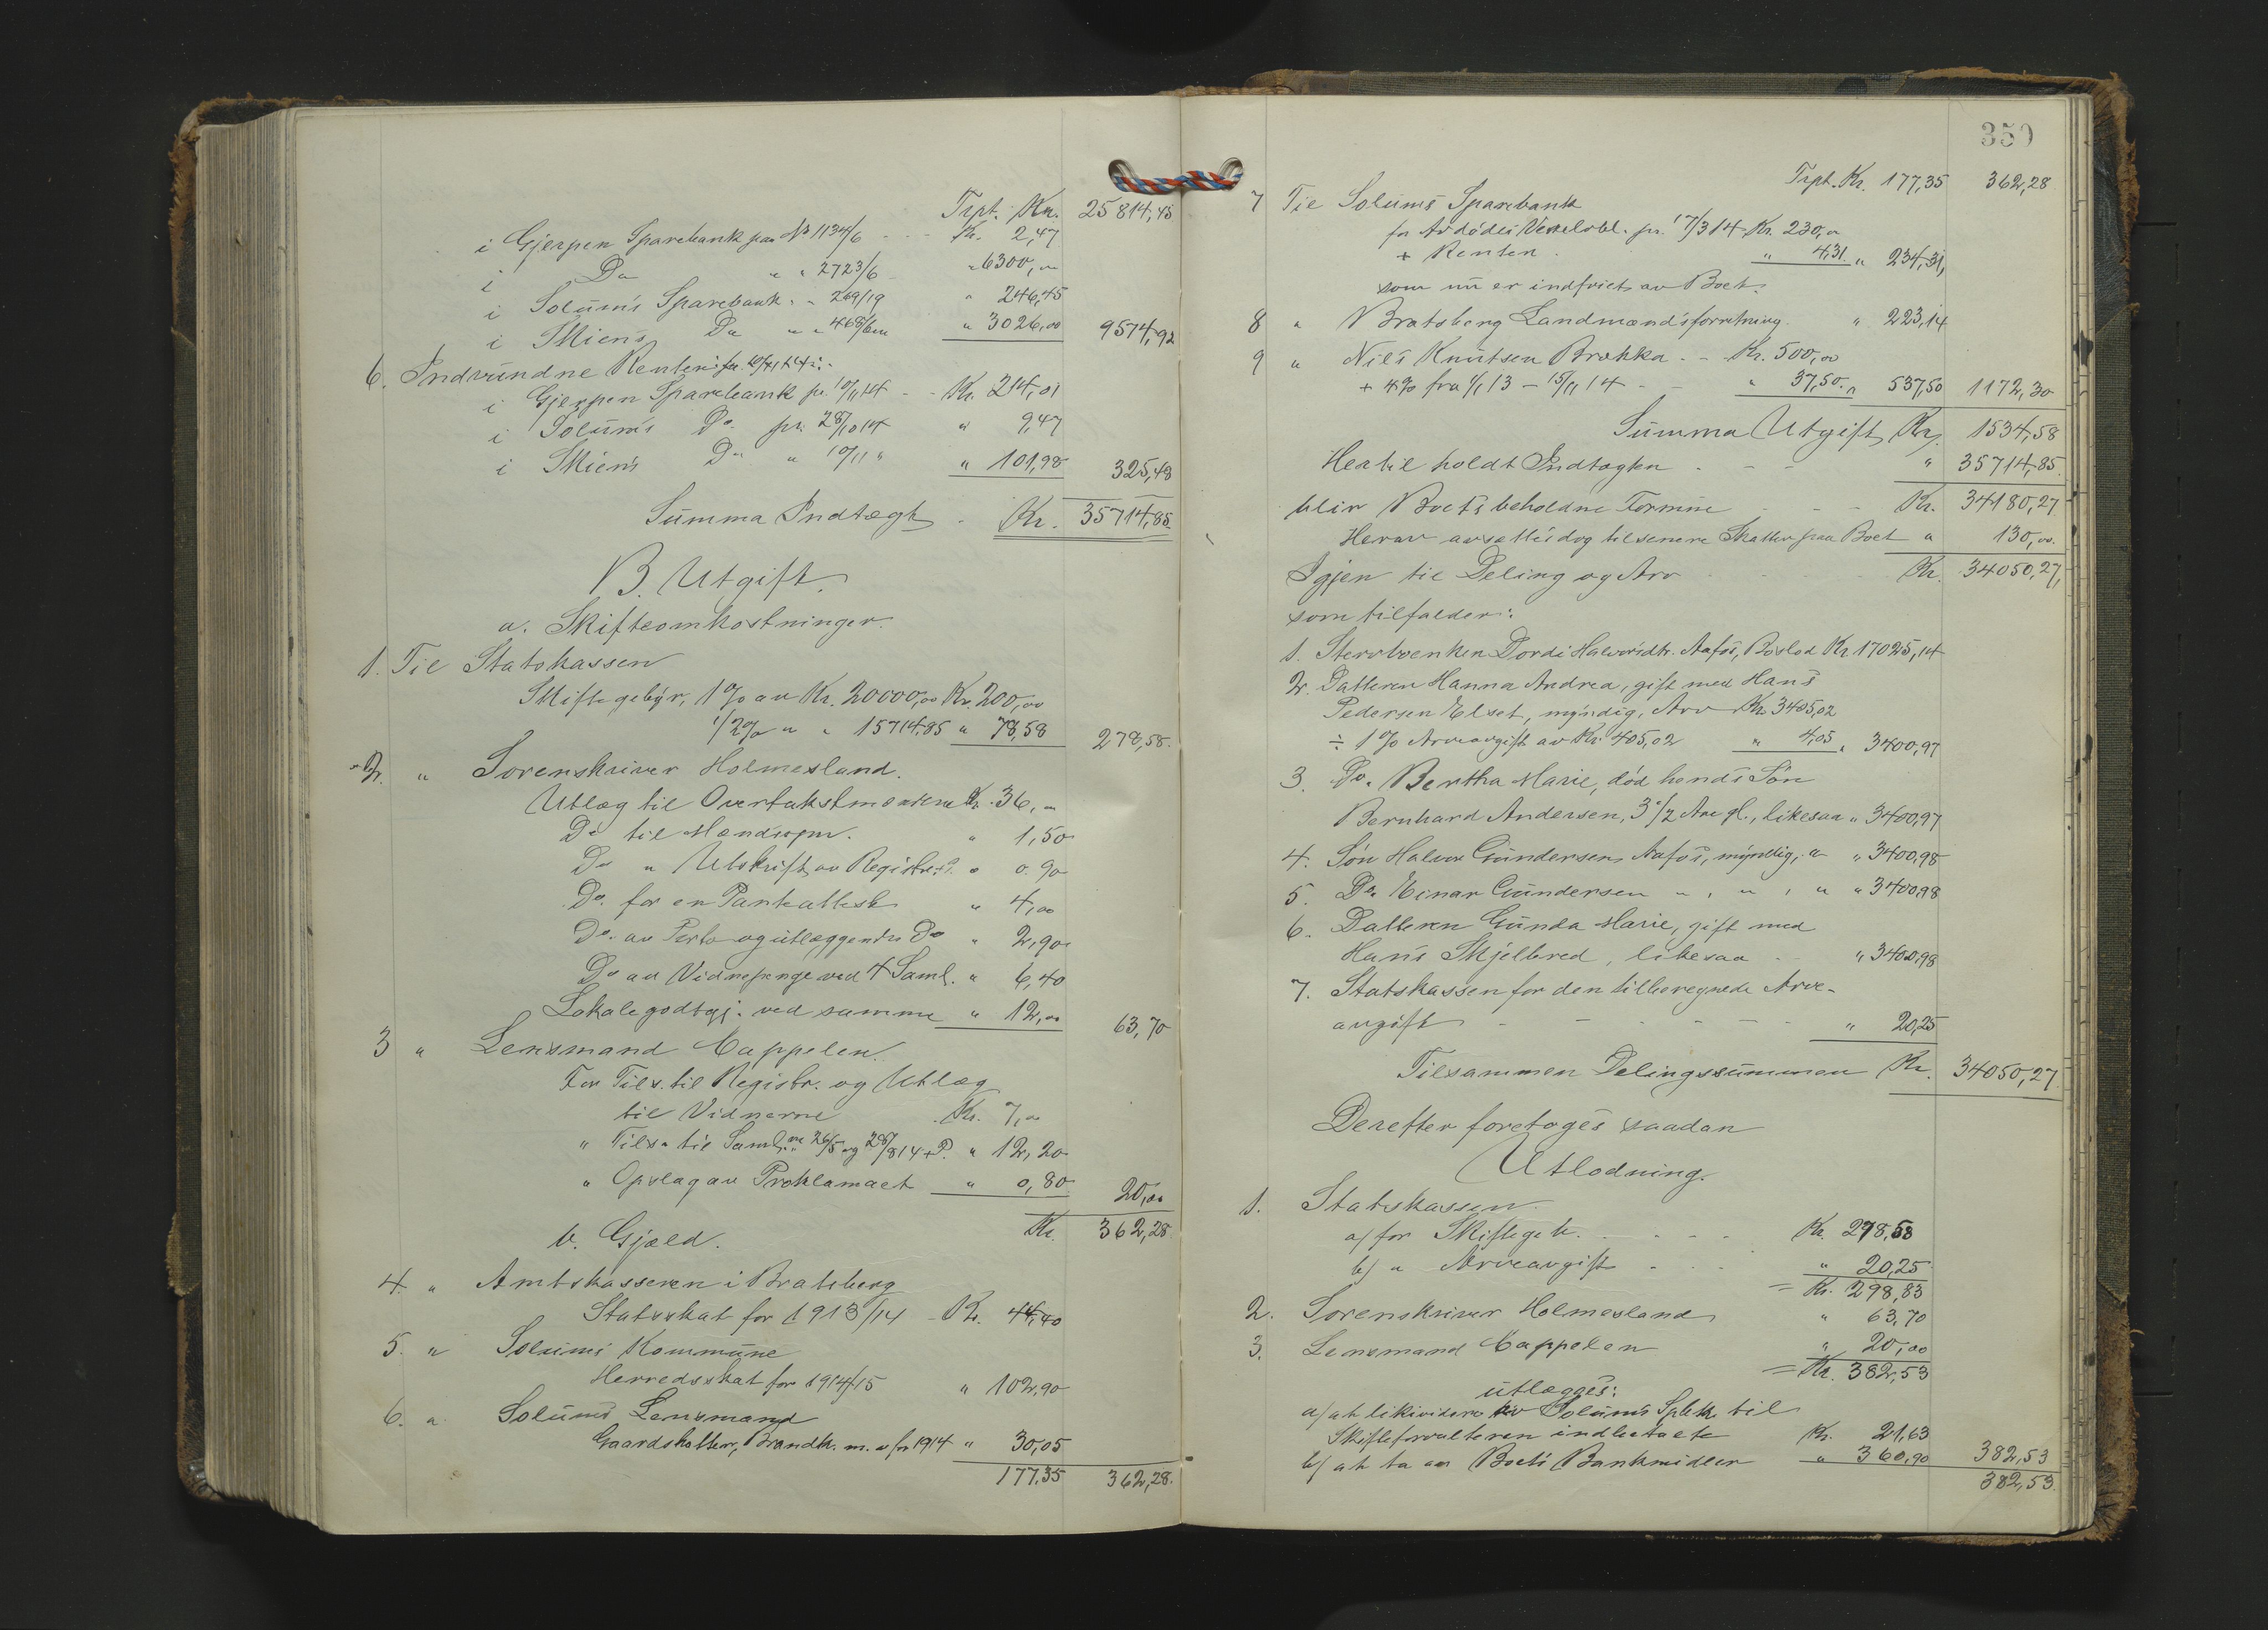 Trpt. Kr. 25814,45
i Gjerpen Sparebank paa No 1134/6 - - Kr. 2,47
i Do " " 2723/6 - " 6300,00
i Solum's Sparebank " " 269/19 " 246,45
i Skiens Do " " " 3026,00 9574,92
6. Indvundne Renter
i Gjerpen Sparebank pr. 10/11 14 - - Kr. 214,01
i Solum's Do. pr. 28/10 14 " 9,47
i Skiens Do " 10/11 " " 101,98 325,48
Summa Indtægt - Kr. 35714,85
B. Utgift.
a. Skifteomkostninger.
1. Til Statskassen
Skiftegebyr, 1% av Kr. 20000,00 Kr. 200,00
1/2% " " 15714,85 " 78,58 278,58.
2. " Sorenskriver Holmesland.
Utlæg til Overtakstmændene Kr. 36,00
Do til Mændsopn. " 1,50
Do " Utskrift av Registr.f. " 0.90
Do. for en Panteattest " 4,00
Do. av Porto og utlæggende Do " 2,90
Do av Vidnepenge ved 4 Saml. " 6,40
Lokalegodtgj. ved samme " 12,00 63,70
3 " Lensmand Cappelen.
For Tils. til Registr. og Utlæg
til Vidnerne Kr. 7,00
" Tils. til Saml. 26/5 og 28/8 14 + P. " 12,20
" Opslag av Proklamaet " 0,80 20,00
Kr. 362,28
b. Gjæld.
4. " Amtskasseren i Bratsberg
Statsskat for 1913/14 - Kr. 44,40
5. " Solums Kommune
Herredsskat for 1914/15 " 102,90
6. " Solums Lensmand
Gaardskatter, Brandk. m. v. for 1914 " 30,05
177,35 362,28.
350
Trpt. Kr. 177,35 362,28
7 Til Solums Sparebank
for Avdødes Vekselobl. pr. 17/3 14 Kr. 230,00
+ Renter. " 4,31. " 234,31,
som nu er indfriet av Boet.
8 " Bratsberg Landmandsforretning. " 223,14
9 " Nils Knutsen Brekka. - Kr. 500,00
+ 4% fra 1/1 13 - 15/11 14 - - " 37,50. " 537,50 1172,30
Summa Utgift Kr. 1534,58
Hertil holdt Indtægten - - - " 35714,85.
blir Boets beholdne Formue - - - Kr. 34180,27
Herav avsættes dog til senere Skatter paa Boet " 130,00.
Igjen til Deling og Arv - - Kr. 34050,27,
som tilfalder:
1. Stervboenken Dordi Halvorsdtr. Aafos, Boslod Kr. 17025,14
2. Datteren Hanna Andrea, gift med Hans
Pedersen Elset, myndig, Arv Kr. 3405,02
÷ 1% Arveavgift av Kr. 405,02 " 4,05 " 3400,97
3. Do. Bertha Marie, død hendes Søn
Bernhard Andersen, 3 1/2 Aar gl., likesaa " 3400,97
4. Søn Halvor Gundersen Aafos, myndig, " " 3400,98
5. Do. Einar Gundersen " , " , " " 3400,98
6. Datteren Gunda Marie, gift med
Hans Skjelbred, likesaa - - " 3400,98
7. Statskassen for den tilberegnede Arve-
avgift - - - - - - " 20,25
Tilsammen Delingssummen Kr. 34050,27.
Derefter foretages saadan
Utlodning.
1. Statskassen.
a) for Skiftegeb. - - - - Kr. 278,58
b) " Arveavgift - - - " 20,25
= Kr. 298,83
2. Sorenskriver Holmesland " 63,70
3. Lensmand Cappelen " 20,00
= Kr. 382,53
utlægges:
a) at likvidere Solum's Spbk. til
Skifteforvalteren Kr. 21,63
b) at ta av Boets Bankmidler " 360,90 382,53
382,53.